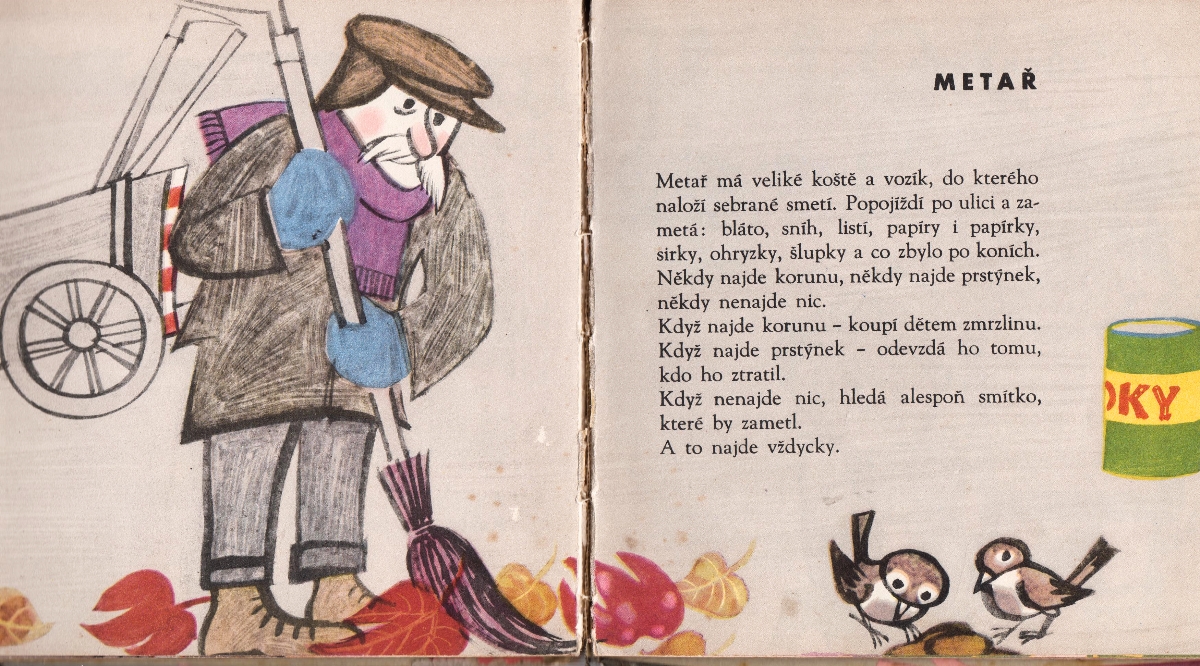 METAŘ
Metař má veliké koště a vozík, do kterého
naloží sebrané smetí. Popojíždí po ulici a za-
metá: bláto, sníh, listí, papíry i papírky,
sirky, ohryzky, šlupky a co zbylo po koních.
Někdy najde korunu, někdy najde prstýnek,
někdy nenajde nic.
Když najde korunu – koupí dětem zmrzlinu.
Když najde prstýnek – odevzdá ho tomu,
kdo ho ztratil.
Když nenajde nic, hledá alespoň smítko,
které by zametl.
A to najde vždycky.
OKY